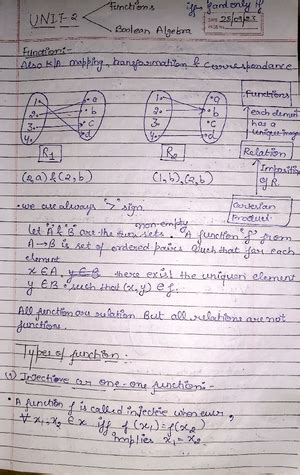 UNIT-2
Functions
Boolean Algebra
iff → if and only if
Functions:-
Also K/A mapping, transformation & correspondance
1 2 3 4
a b c d
1 2 3 4
a b c d
R1
R2
(2,a) & (2,b)
(1,b), (2,b)
Functions
each element
has a
unique image
Relation
Imposition
of R.
Cartesian
Product
• we are always ">" sign.
non-empty
Let "A" & "B" are the two sets. A function "f" from
A→B is set of ordered pairs such that for each
element
x ∈ A, y ∈ B there exist the unique element
y ∈ B such that (x,y) ∈ f.
All function are relation But all relations are not
functions.
Types of function.
(1) Injective or one-one function:-
• A function f is called injective whenever,
∀ x1, x2 ∈ x iff f(x1) = f(x2)
implies x1 = x2